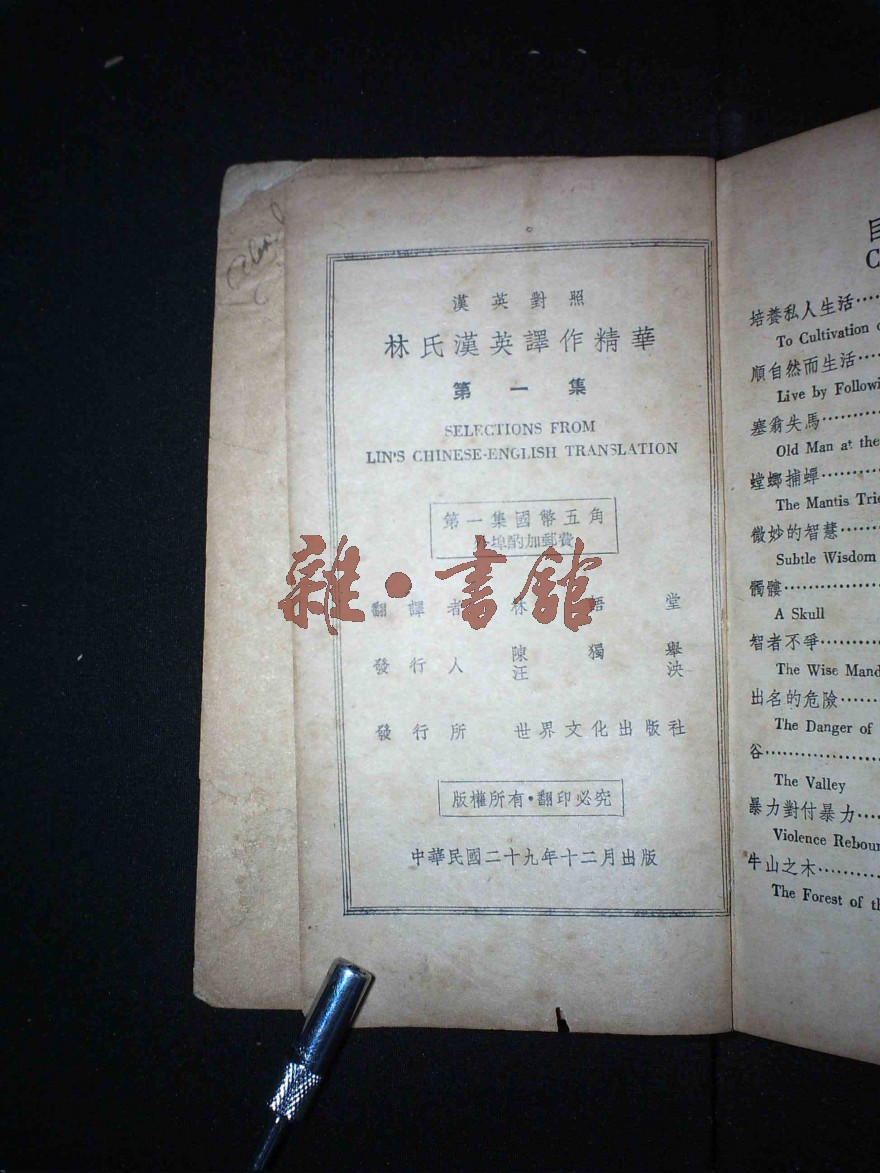 漢英對照
林氏漢英譯作精華
第一集
SELECTIONS FROM
LIN'S CHINESE-ENGLISH TRANSLATION
第一集國幣五角
外埠酌加郵費
雜·書館
翻譯者 林語堂
發行人 陳獨舉
汪泱
發行所 世界文化出版社
版權所有·翻印必究
中華民國二十九年十二月出版
目
C
培養私人生活
To Cultivation o
順自然而生活
Live by Followi
塞翁失馬
Old Man at the
螳螂捕蟬
The Mantis Trie
微妙的智慧
Subtle Wisdom
髑髏
A Skull
智者不爭
The Wise Mand
出名的危險
The Danger of
谷
The Valley
暴力對付暴力
Violence Rebour
牛山之木
The Forest of th